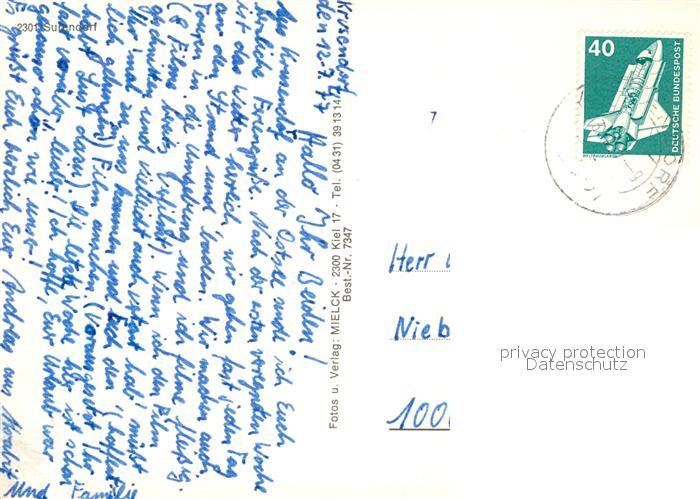 2301 Surendorf
Krusendorf,
den 12.7.77
Hallo Ihr Beiden!
Am Sonnendeck an der Ostsee sende ich Euch
herzliche Feriengrüße. Nach der ersten verregneten Woche
ist das Wetter herrlich geworden. Wir gehen fast jeden Tag
an den Strand baden. Wir machen auch
Touren in die Umgebung und ich filme fleißig.
(8 Filme hab ich gefilmt). Wenn ich den Film
geschnitten und vielleicht auch vertont hab' müßt
Ihr mal zu uns kommen und Euch den (hoffent-
lich gelungenen) Film ansehen (Vorausgesetzt Ihr
habt Lust dazu). Die letzte Woche ist schon
fast vorüber, leider! Ich hoffe, Euer Urlaub war
genauso schön wie unser!
Es grüßt Euch herzlich Eure Andrea aus
Und Familie
Fotos u. Verlag: MIELCK - 2300 Kiel 17 - Tel. (0431) 39 13 14
Best.-Nr. 7347
7
40
DEUTSCHE BUNDESPOST
WELTRAUMLABOR
Herr
Nieb
1000
privacy protection
Datenschutz